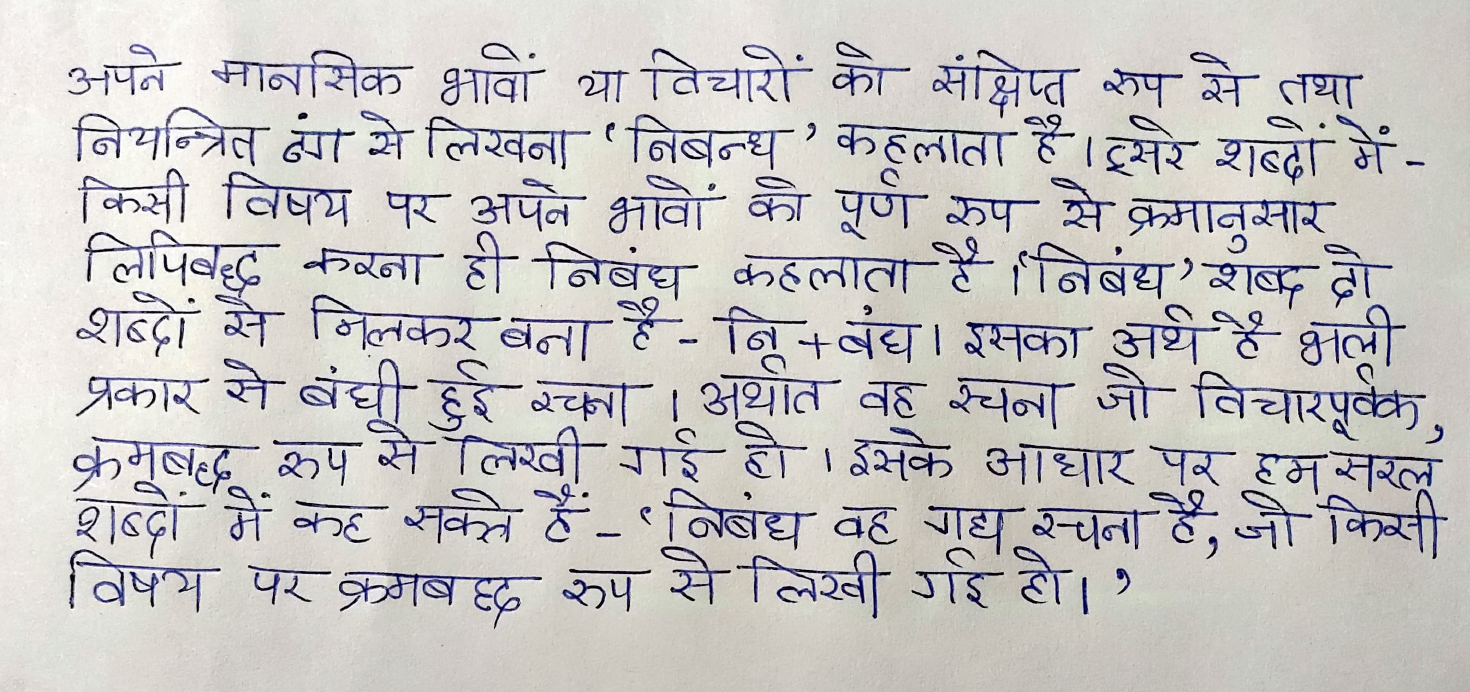 अपने मानसिक भावों या विचारों को संक्षिप्त रूप से तथा
नियन्त्रित ढंग से लिखना 'निबन्ध' कहलाता है। दूसरे शब्दों में -
किसी विषय पर अपने भावों को पूर्ण रूप से क्रमानुसार
लिपिबद्ध करना ही निबंध कहलाता है। 'निबंध' शब्द दो
शब्दों से मिलकर बना है - नि + बंध। इसका अर्थ है भली
प्रकार से बंधी हुई रचना। अर्थात वह रचना जो विचारपूर्वक,
क्रमबद्ध रूप से लिखी गई हो। इसके आधार पर हम सरल
शब्दों में कह सकते हैं - 'निबंध वह गद्य रचना है, जो किसी
विषय पर क्रमबद्ध रूप से लिखी गई हो।'